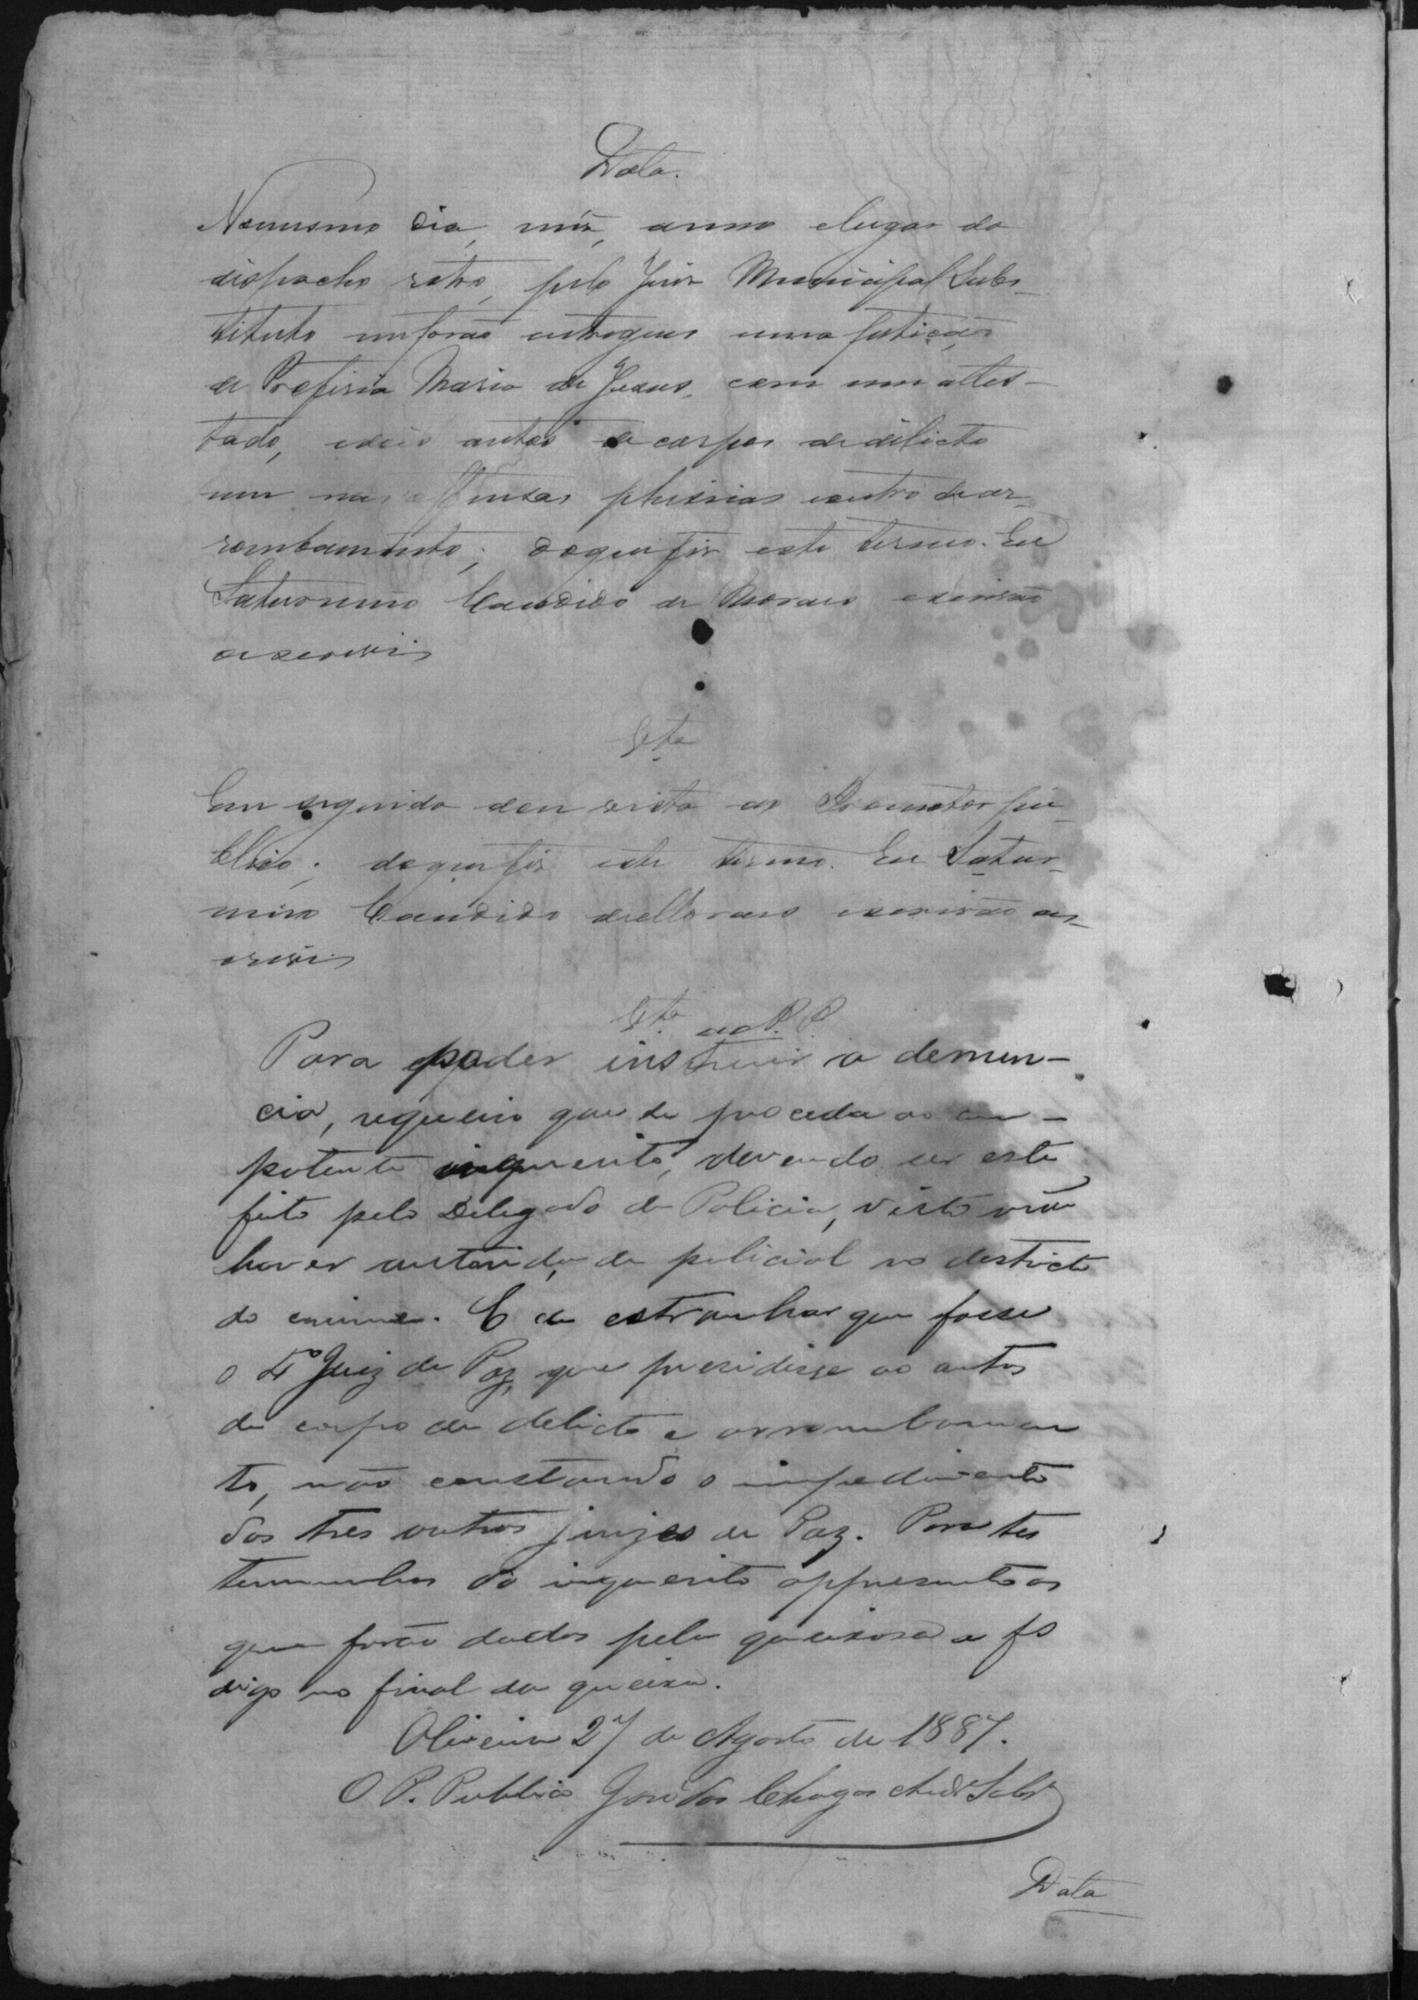 Data.
No mesmo dia, mez, anno e lugar do
dispacho retro, pelo Juiz Municipal Subs-
tituto me forão entregues uma petição
de Maria de Jesus, com um attes-
tado, e dois autos de corpos de delicto
um nas offensas phisicas e outro de ar-
rombamento; do que fiz este termo. Eu
Saturnino Candido de Moraes escrivão
o escrevi
Vta
Em seguida dou vista ao Promotor pu-
blico; do que fiz este termo. Eu Satur-
nino Candido de Moraes escrivão o es-
crevi
Vta ao P. P.
Para poder instruir a denun-
cia, requeiro que se proceda ao com-
petente inquerito, devendo ser este
feito pelo Delegado de Policia, visto não
haver autoridade policial no destricto
do crime. É de estranhar que fosse
o 4º Juiz de Paz, que presidisse ao autos
de corpo de delicto e arrombamen
to, não constando o impedimento
dos tres outros juizes de Paz. Para tes
temunhas do inquerito appresento as
que forão dadas pela queixosa a fs
digo no final da queixa.
Oliveira 27 de Agosto de 1887.
O P. Publico José das Chagas
Data